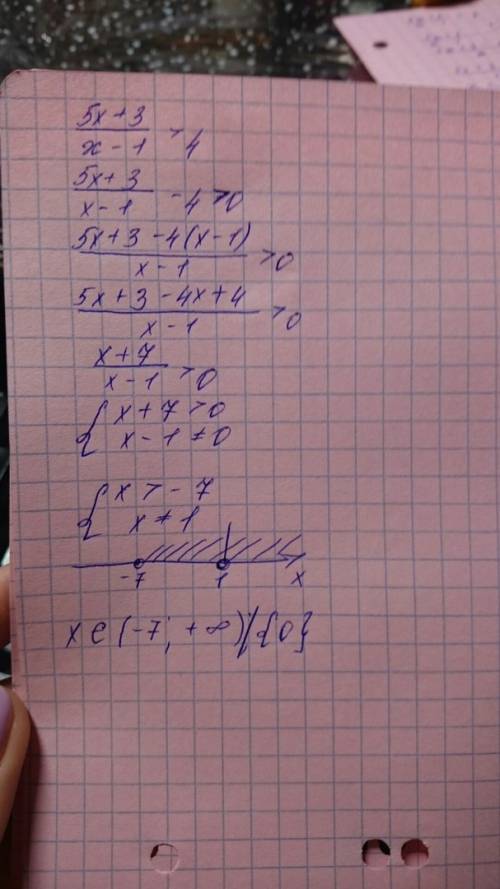 5x+3 / x-1 > 4
5x+3 / x-1 - 4 > 0
5x+3-4(x-1) / x-1 > 0
5x+3-4x+4 / x-1 > 0
x+7 / x-1 > 0
{ x+7>0
x-1≠0
{ x>-7
x≠1
-7 1 x
x∈(-7; +∞)/{0}